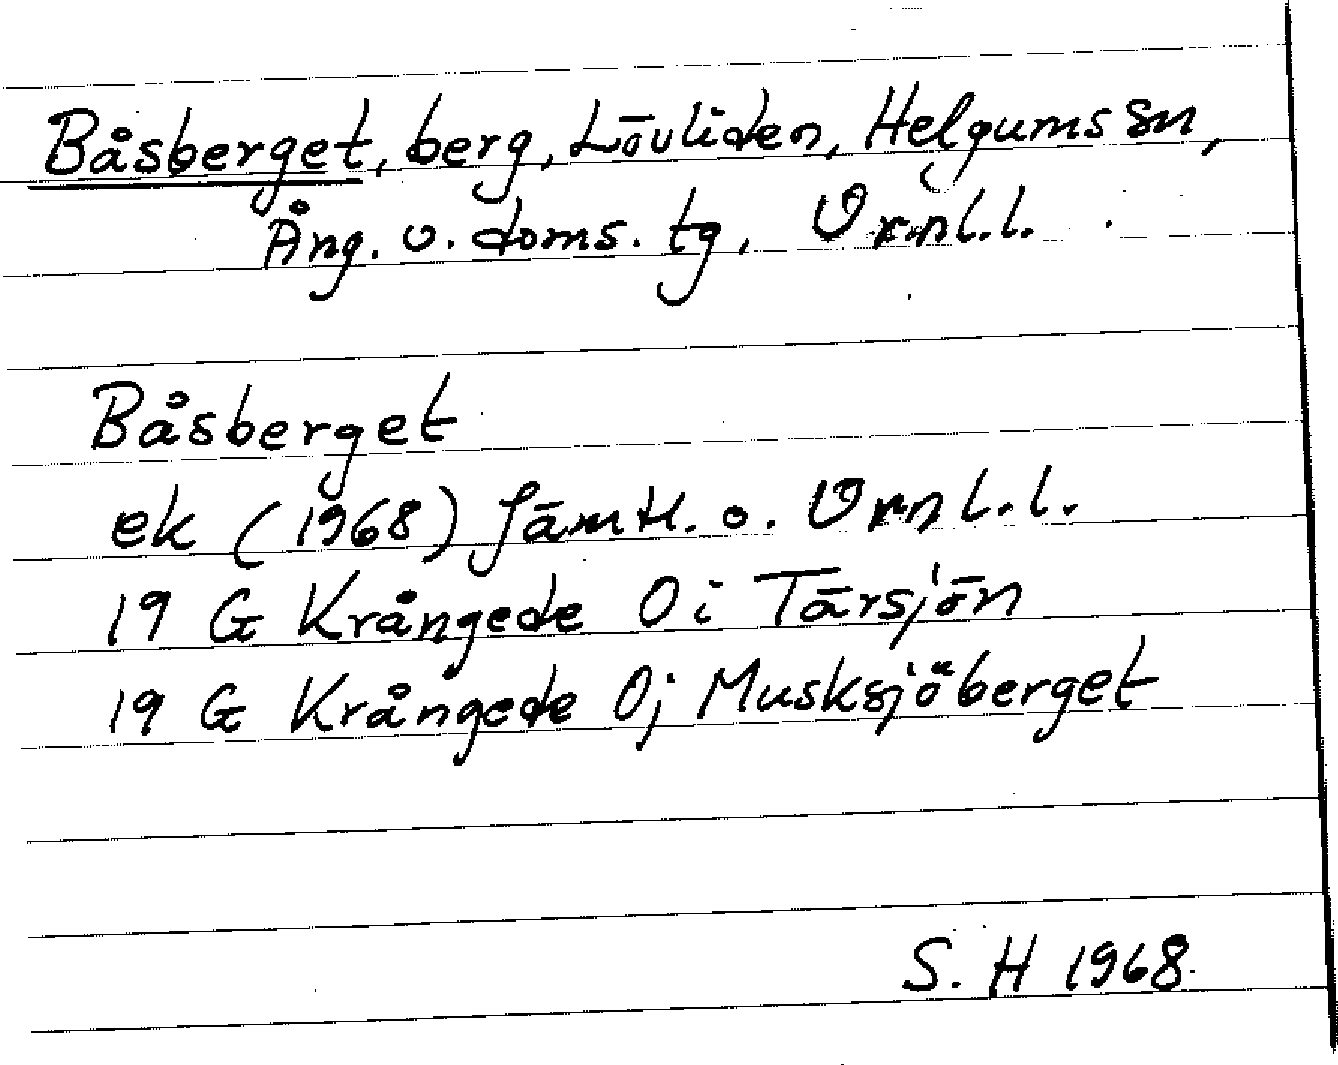 Båsberget, berg, Lövliden, Helgums sn,
Ång. v. doms. tg, Vrnl.l.
Båsberget
ek (1968) Jämtl. o. Vrnl.l.
19 G Krångede 0i Tārsjön
19 G Krångede 0j Musksjöberget
S. H 1968